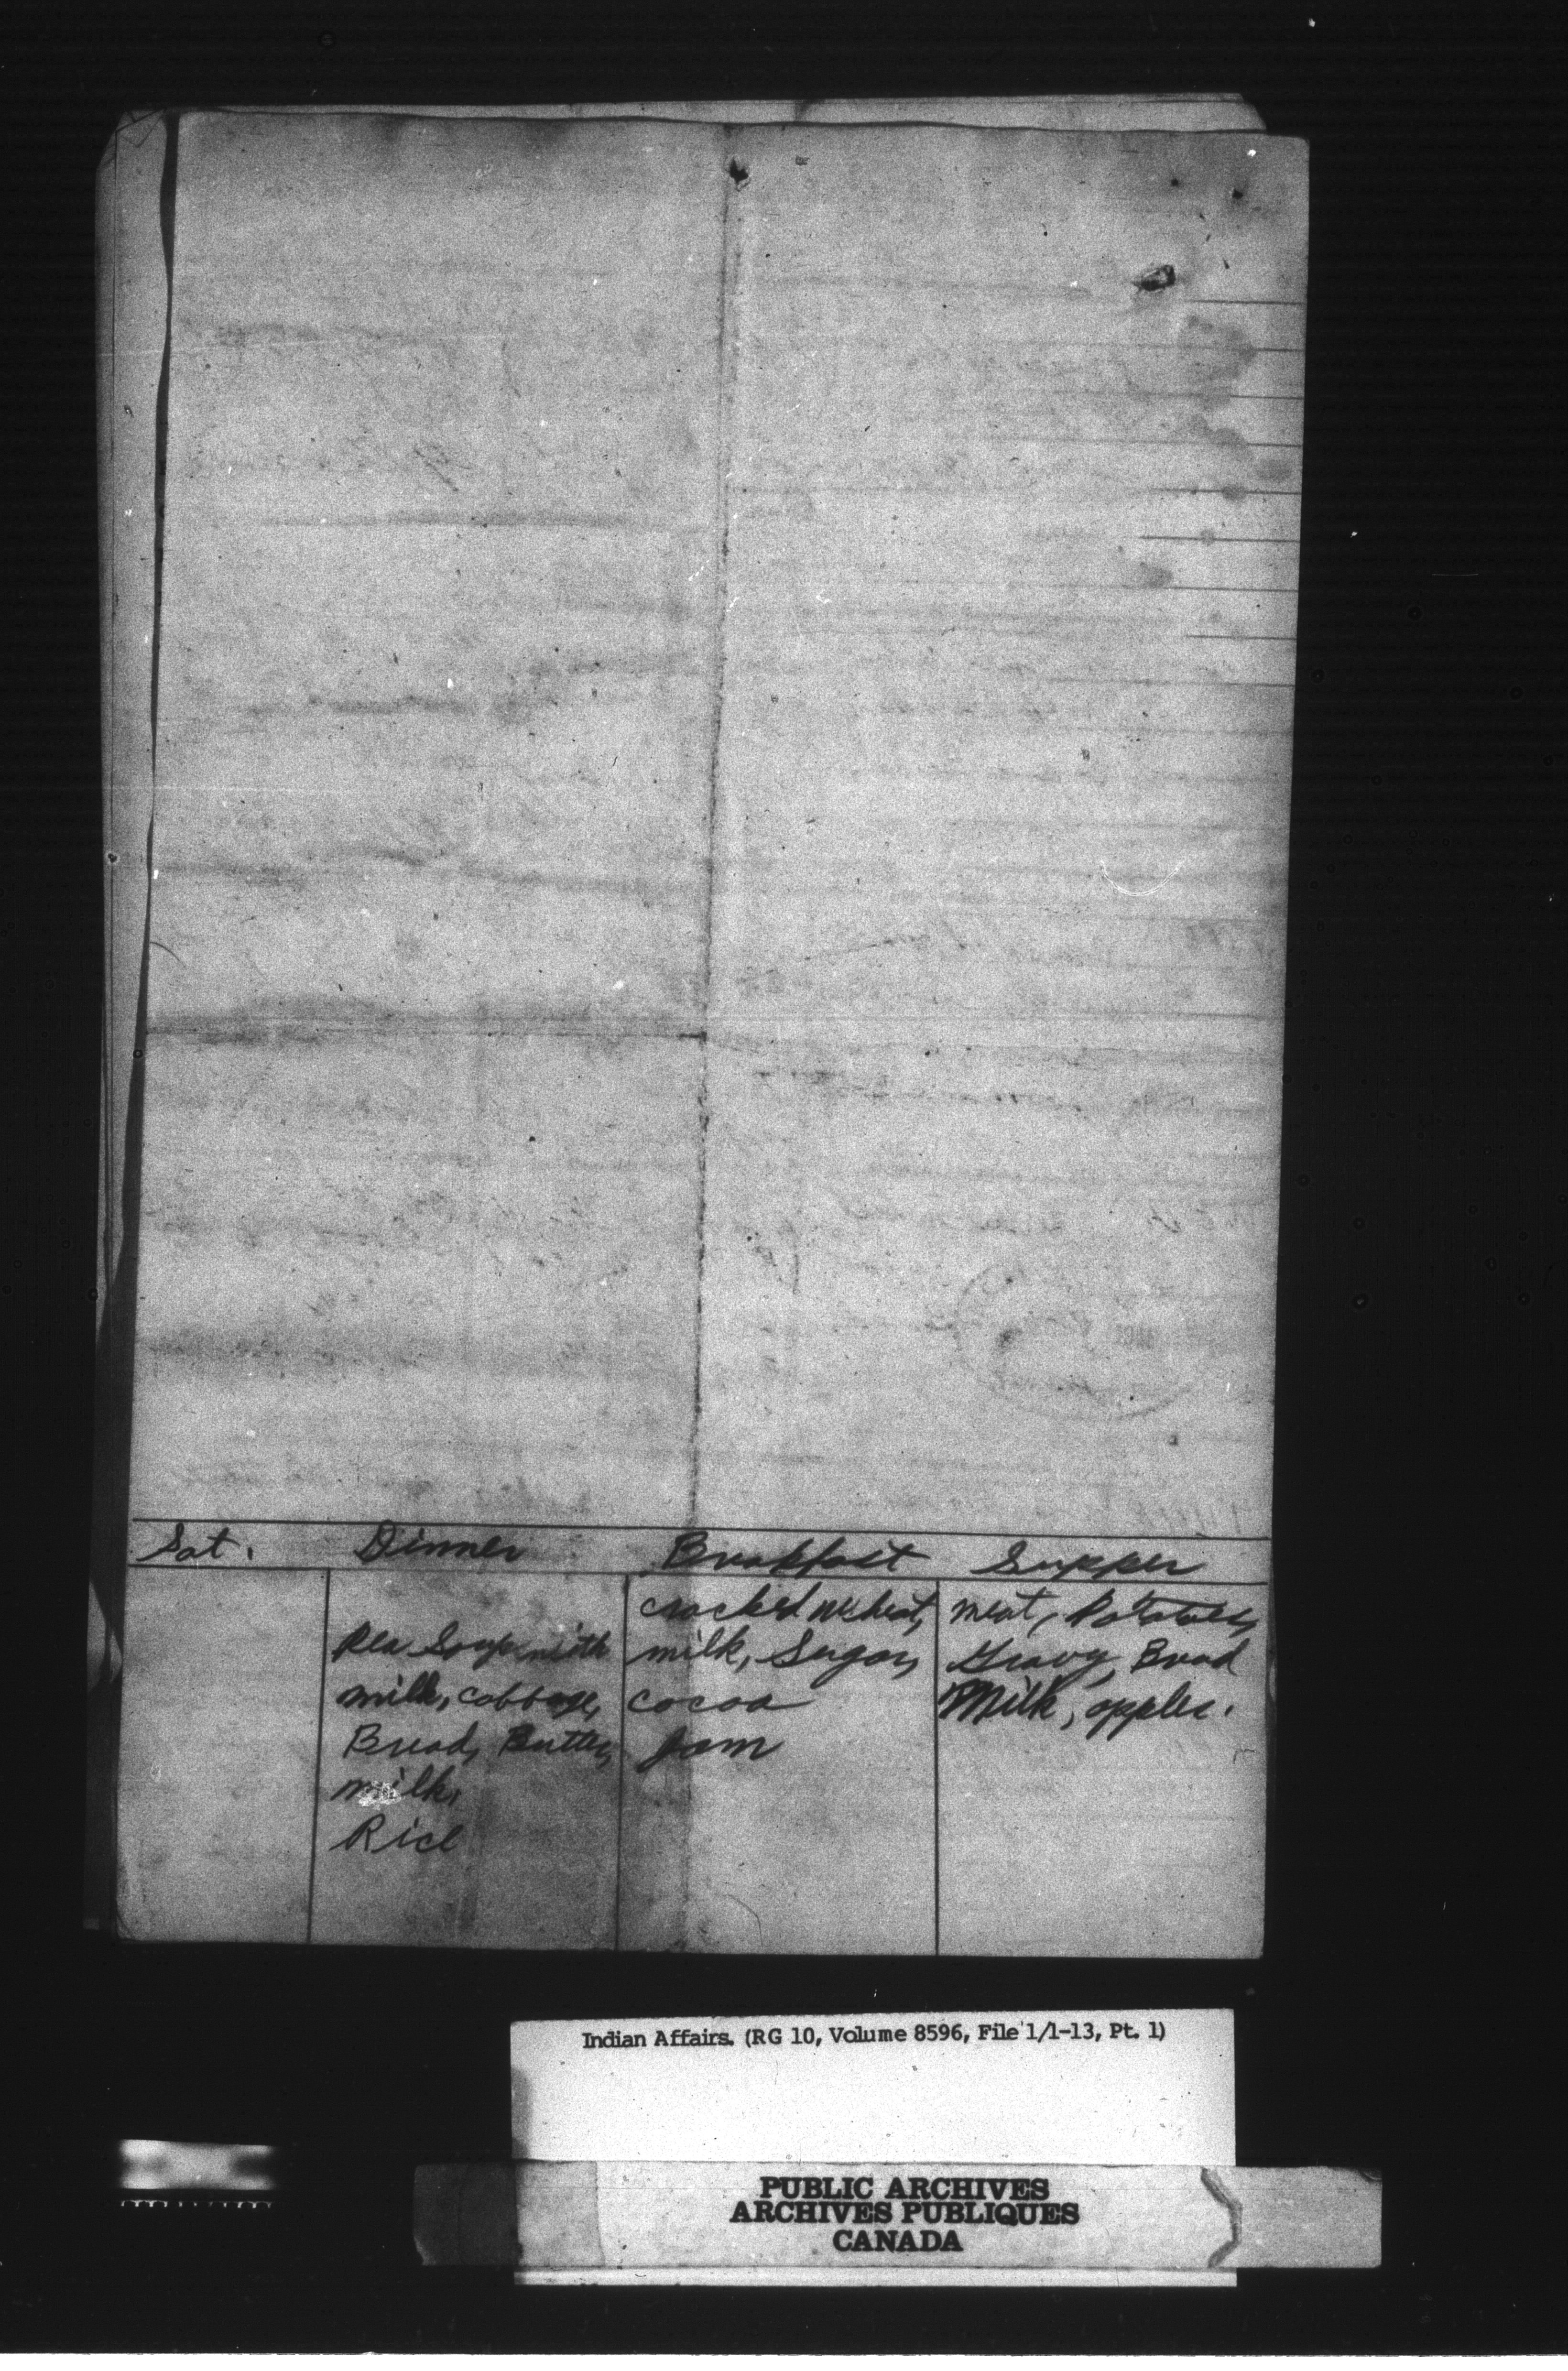 Sat. Dinner Breakfast Supper
Pea Soup with
milk, cabbage,
Bread, Butter,
milk,
Rice
cracked wheat,
milk, Sugar,
cocoa
Jam
meat, Potatoes,
Gravy, Bread
Milk, apples.
Indian Affairs. (RG 10, Volume 8596, File 1/1-13, Pt. 1)
PUBLIC ARCHIVES
ARCHIVES PUBLIQUES
CANADA